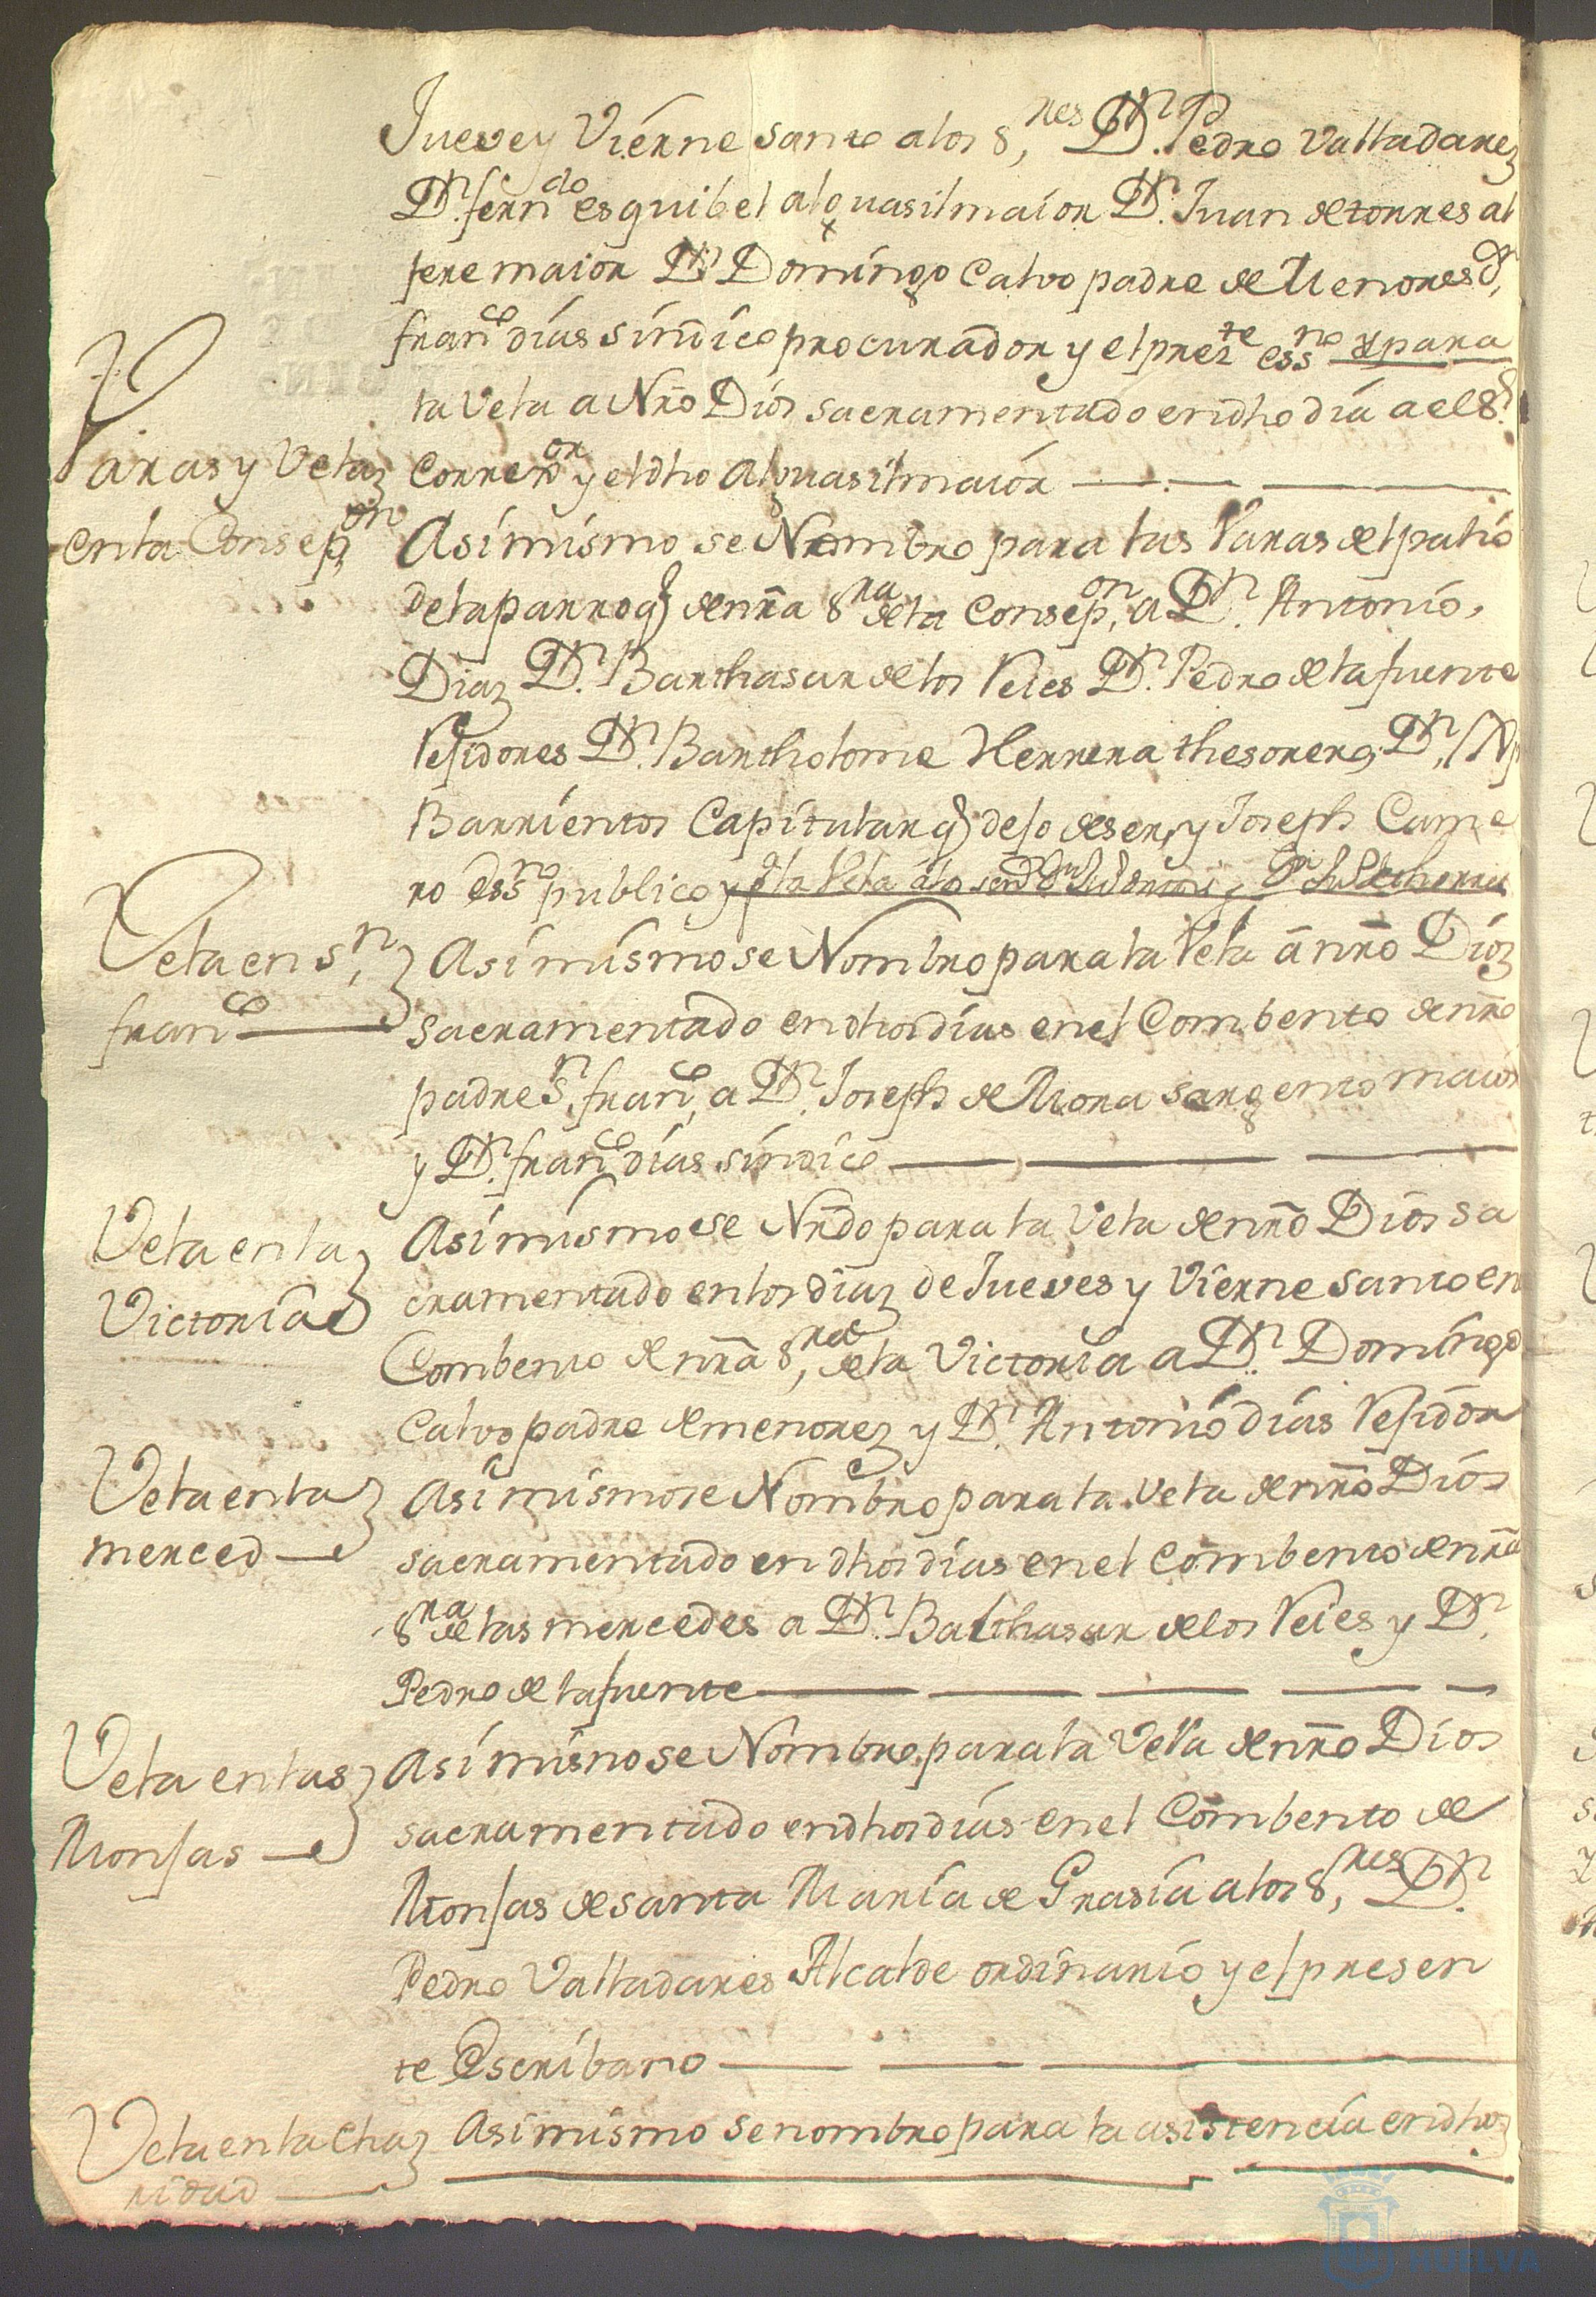 Jueve y Vierne Santo a los S.res Dn. Pedro Valladares
Dn. ferndo esquibel alguasil maior Dn. Juan de torres al
fere maior Dn. Domingo Calvo padre de Menores Dn.
franco dias sindico procurador y el preste essno y para
la Vela a Nro Dios sacramentado en dho dia a el Sr.
Varas y Velas
Correxor y el dho Alguasil maior
en la Consepon
Asimismo se Nombro para las Varas del patio
de la parroq. de nra Sra de la Consepon, a Dn. Antonio
Diaz Dn. Barthasar de los Reies Dn. Pedro de la fuente
Rejidores Dn. Bartholome Herrera thesorero, Dn.
Barrientos Capitular q dejo de ser, y Joseph Carne
ro essno publico y pa la Vela a los
Vela en Sn.
Asimismo se Nombro para la Vela a nro Dios
franco
sacramentado en dhos dias en el Combento de nro
padre Sn. franco, a Dn. Joseph de Mora sargento maior
y Dn. franco dias sindico
Vela en la
Asimismo se Nrdo para la Vela de nro Dios sa
Victoria
cramentado en los diaz de Jueves y Vierne santo en
Combento de nra Sra de la Victoria a Dn. Domingo
Calvo padre de menorez y Dn. Antonio dias Rejidor
Vela en la
Asimismo se Nombro para la Vela de nro Dios
merced
sacramentado en dhos dias en el Combento de nra
Sra de las mercedes a Dn. Balthasar de los Reies y Dn.
Pedro de la fuente
Vela en las
Asimismo se Nombro para la Vela de nro Dios
Monjas
sacramentado en dhos dias en el Combento de
Monjas de santa Maria de Grasia a los S.res Dn.
Pedro Valladares Alcalde ordinario y el presen
te Escribano
Vela en la Cha
Asimismo se nombro para la asistencia en dhos
ridad
HUELVA